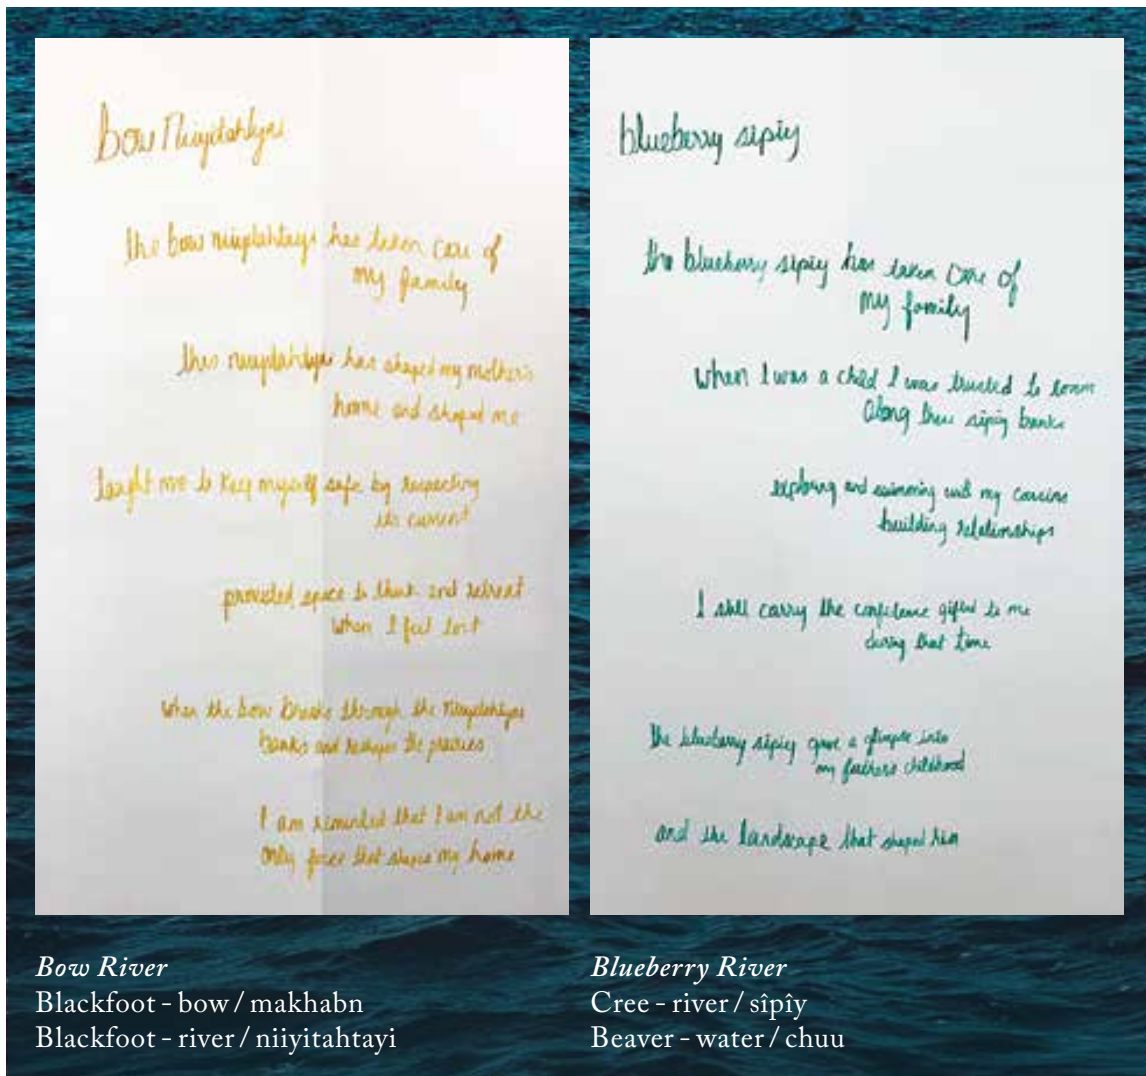 bow Niiyitahtayi
the bow niiyitahtayi has taken care of
my family
this niiyitahtayi has shaped my mother's
home and shaped me
taught me to keep myself safe by respecting
its current
provided space to think and retreat
when I feel lost
when the bow breaks through the niiyitahtayi
banks and reshapes the prairies
I am reminded that I am not the
only force that shapes my home
blueberry sîpîy
the blueberry sîpîy has taken care of
my family
when I was a child I was trusted to
along these sîpîy banks
exploring and swimming with my cousins
building relationships
I still carry the confidence gifted to me
during that time
the blueberry sîpîy gave a glimpse into
my fathers childhood
and the landscape that shaped him
Bow River
Blackfoot - bow / makhabn
Blackfoot - river / niiyitahtayi
Blueberry River
Cree - river / sîpîy
Beaver - water / chuu